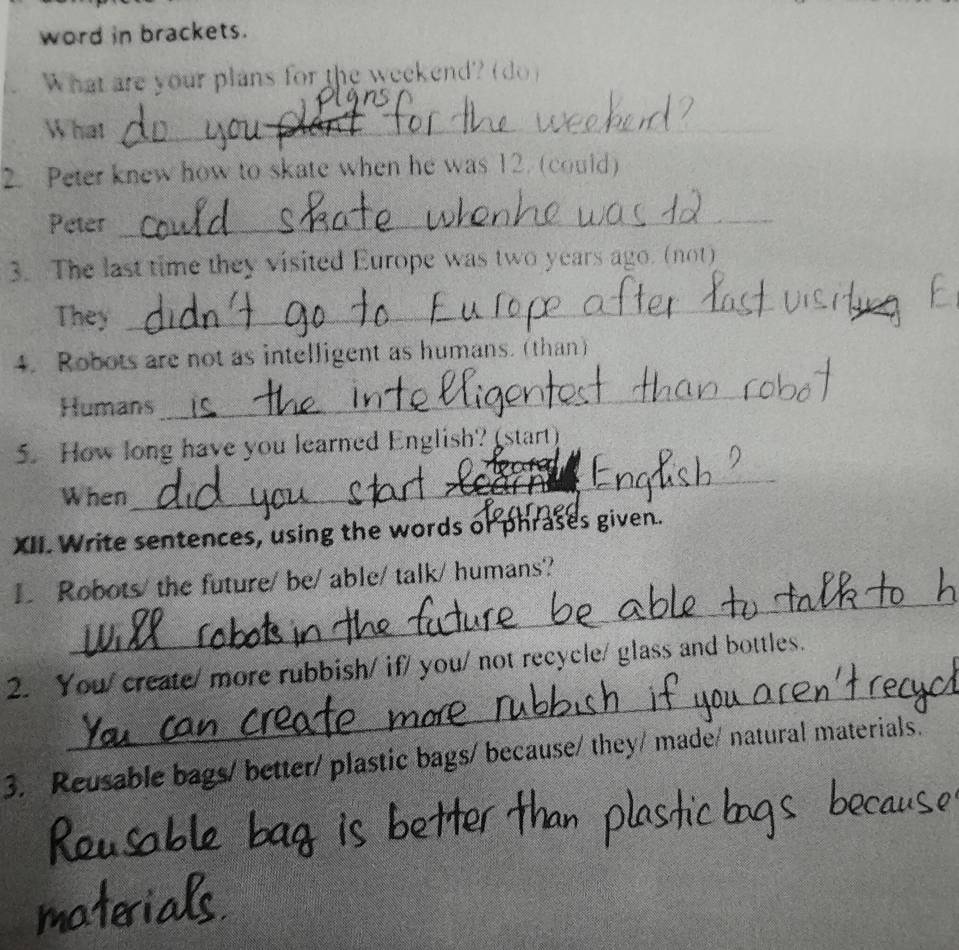 word in brackets.
What are your plans for the weekend? (do)
plans
What do you plant for the weekend?
2. Peter knew how to skate when he was 12. (could)
Peter could skate when he was 12
3. The last time they visited Europe was two years ago. (not)
They didn't go to Europe after last visiting E
4. Robots are not as intelligent as humans. (than)
Humans is the intelligentest than robot
5. How long have you learned English? (start)
When did you start learn English?
learned
XII. Write sentences, using the words or phrases given.
1. Robots/ the future/ be/ able/ talk/ humans?
Will robots in the future be able to talk to h
2. You/ create/ more rubbish/ if/ you/ not recycle/ glass and bottles.
You can create more rubbish if you aren't recycl
3. Reusable bags/ better/ plastic bags/ because/ they/ made/ natural materials.
Reusable bag is better than plastic bags because
materials.